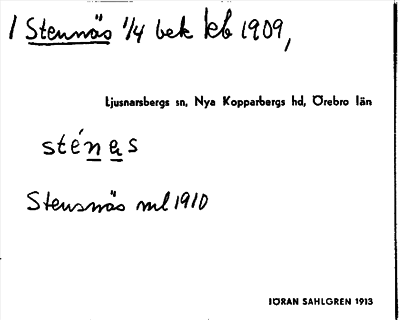 1 Stennäs 1/4 bek kb 1909,
Ljusnarsbergs sn, Nya Kopparbergs hd, Örebro län
sténas
Stensnäs ml 1910
JÖRAN SAHLGREN 1913